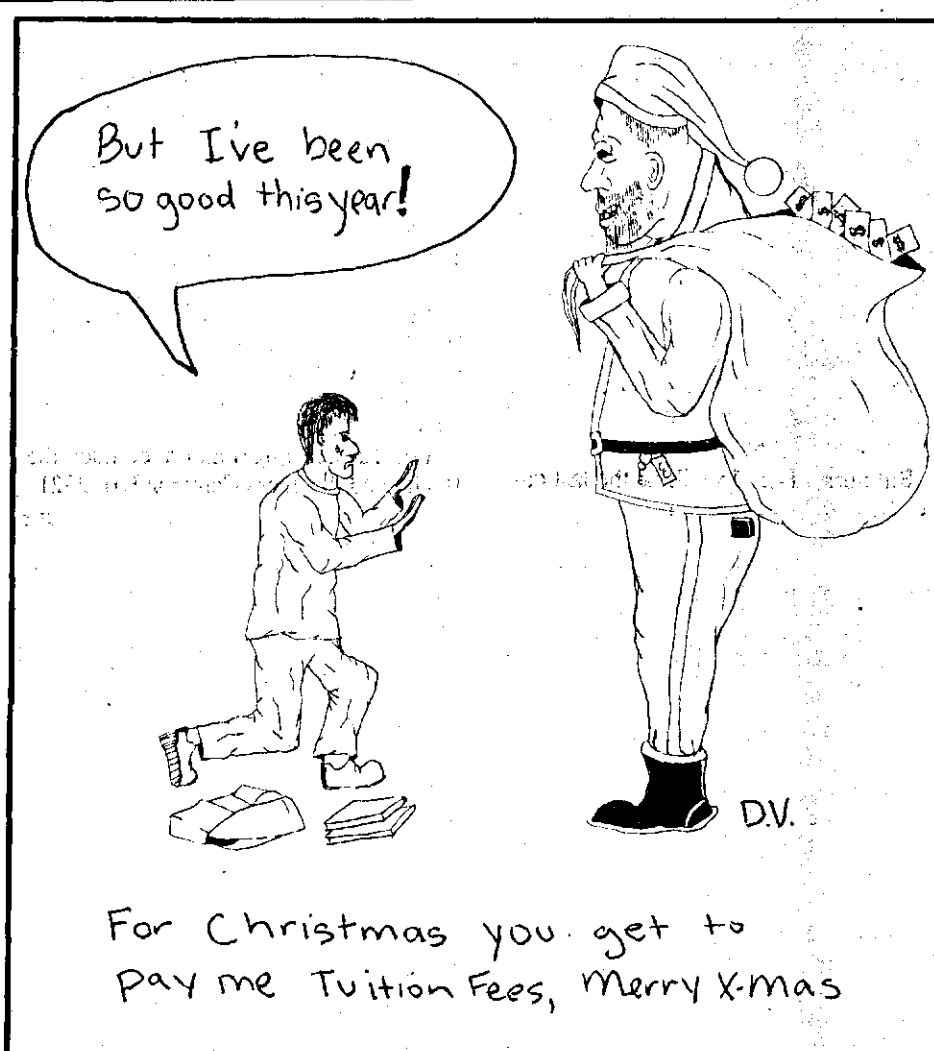 But I've been
so good this year!
$ $ $ $ $ $
D.V.
For Christmas you get to
pay me Tuition Fees, Merry X-mas